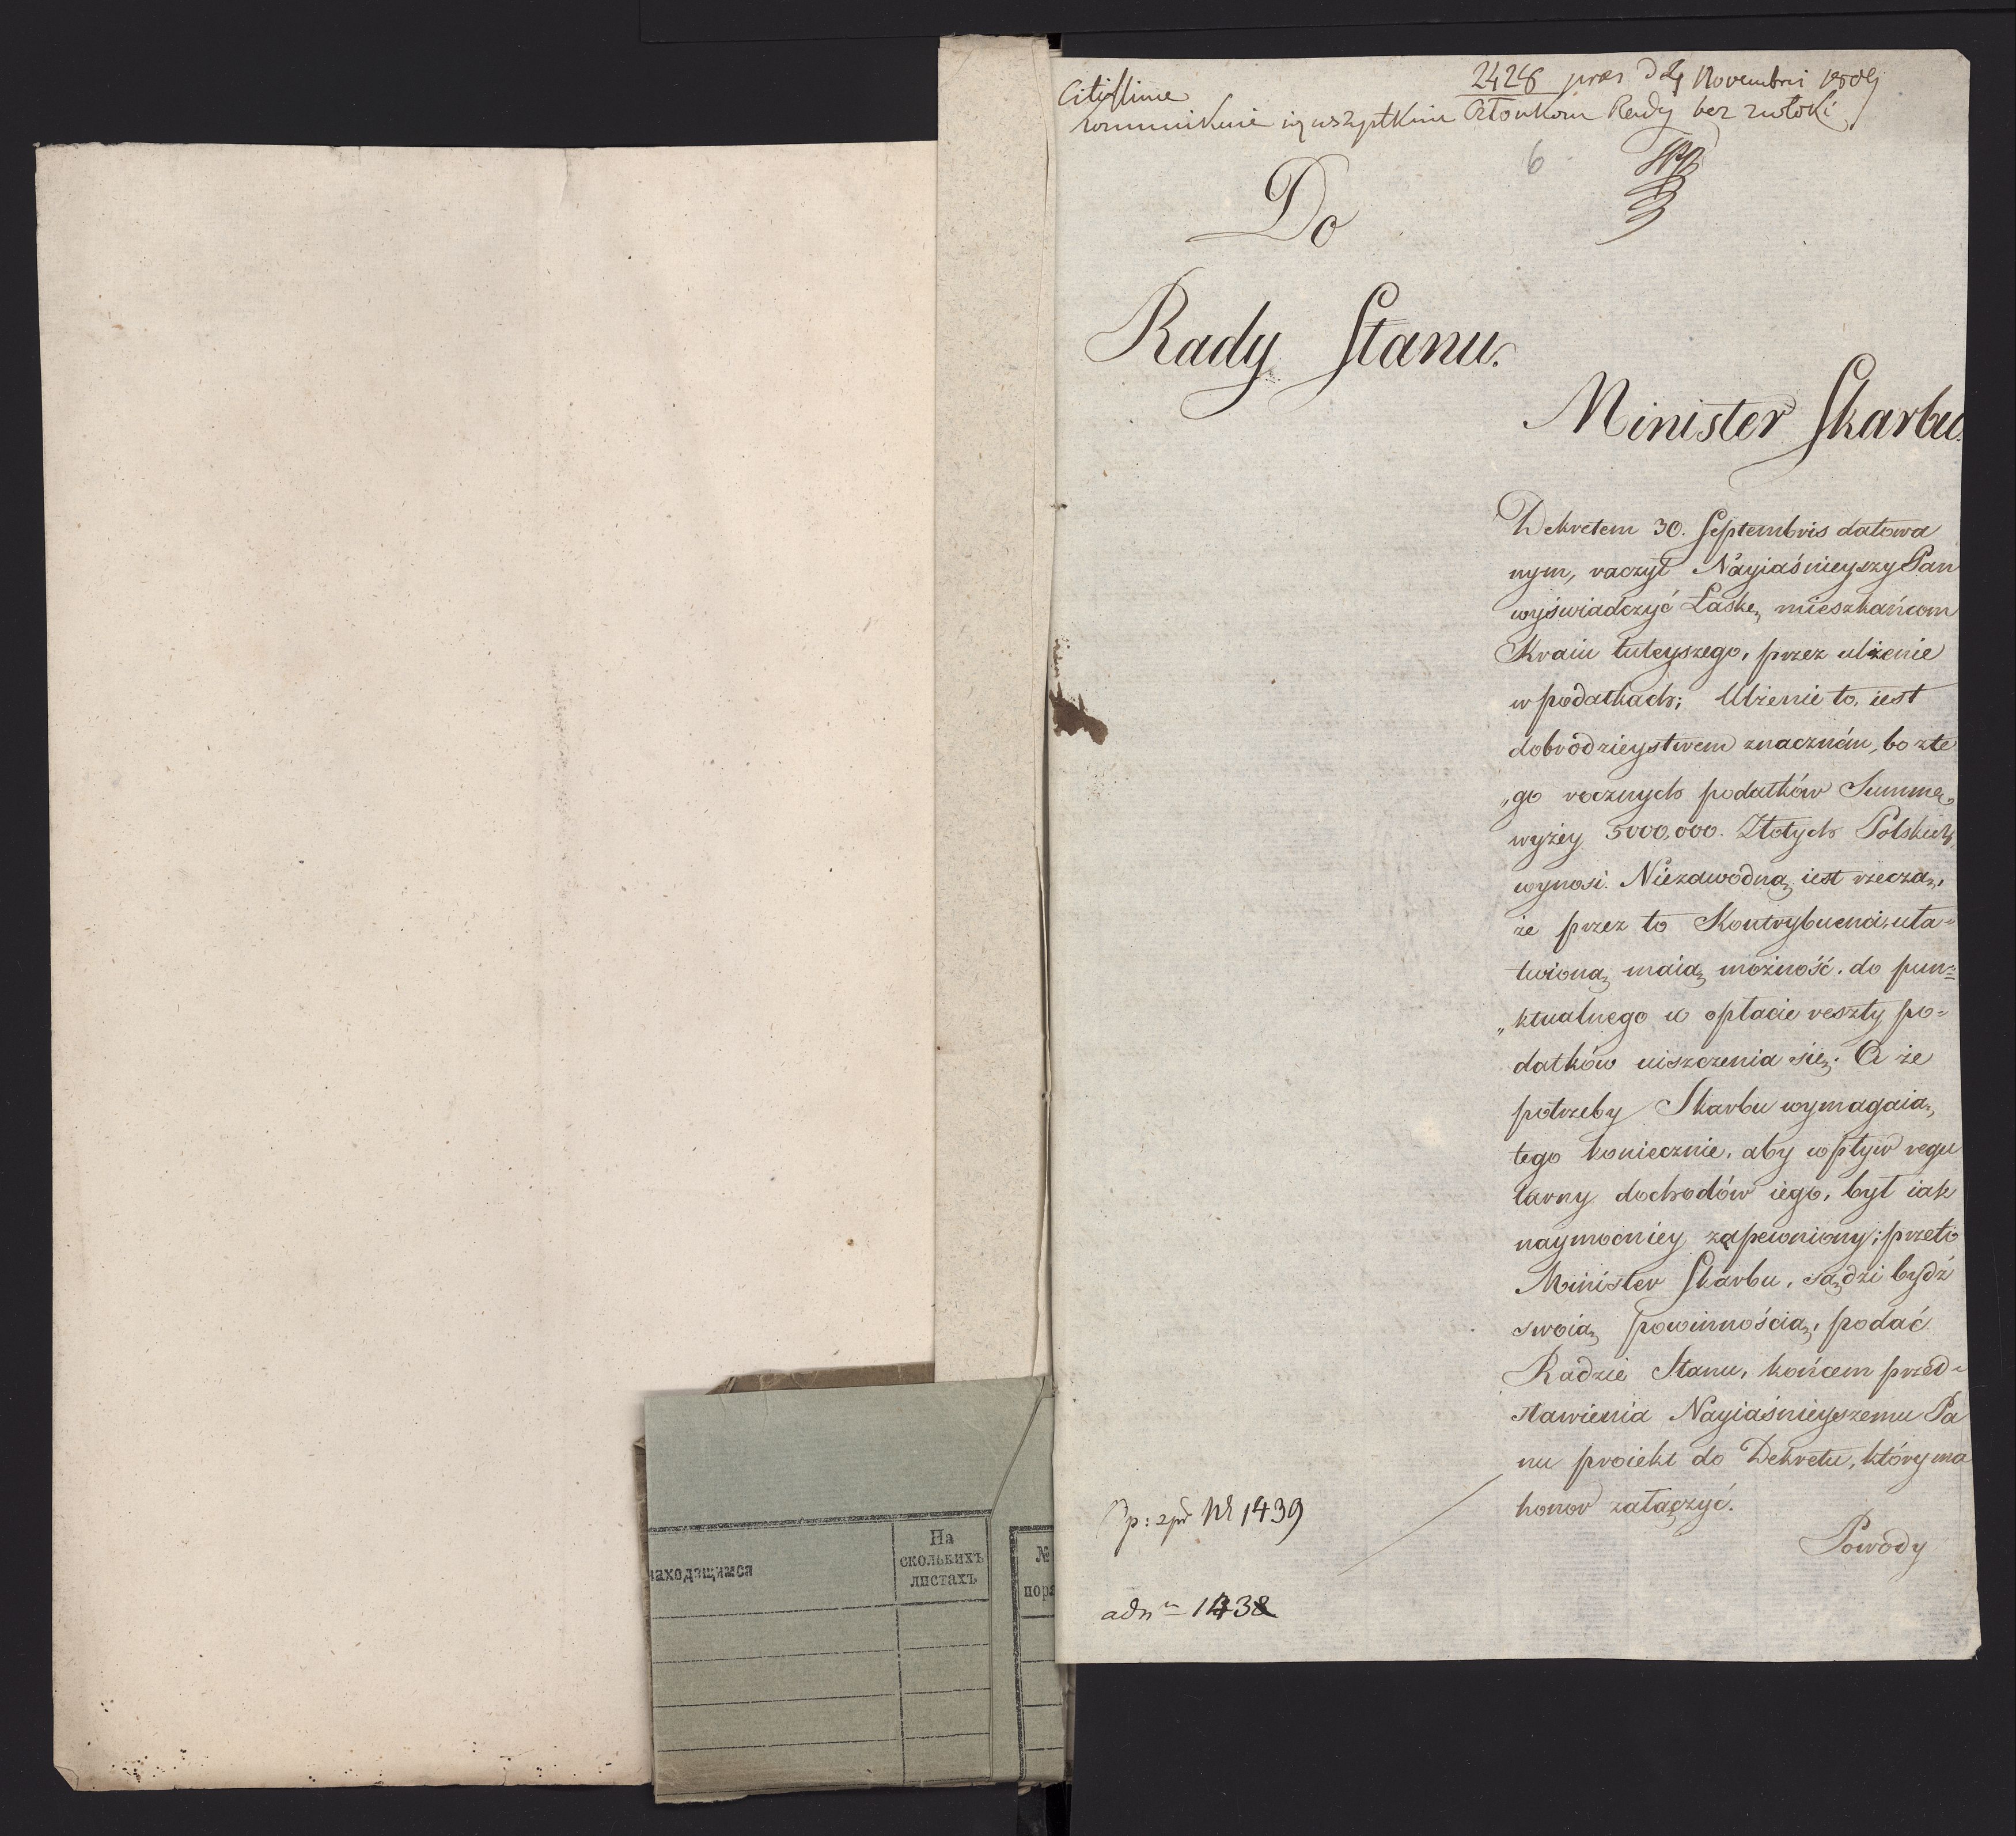 2428 præs d 4 Novembris 1809
Citissime
kommunikuie się wszystkim Członkom Rady bez zwłoki
6
Do
Rady Stanu.
Minister Skarbu.
Dekretem 30. Septembris datowa
nym, raczył Nayiaśnieyszy Pan
wyświadczyć Łaskę, mieszkańcom
Kraiu tuteyszego, przez ulżenie
w podatkach; Ulżenie to, iest
dobrodzieystwem znaczném, bo z te
„go rocznych podatków Summę
wyżey 5000,000. Złotych Polskich,
wynosi. Niezawodną iest rzeczą,
że przez to Kontrybuenci, uła=
twioną maią możność, do pun=
„ktualnego w opłacie reszty po=
datków uiszczenia się; A że
potrzeby Skarbu wymagaią,
tego koniecznie, aby wpływ regu
larny dochodów iego, był iak
naymocniey zapewniony; przeto
Minister Skarbu, sądzi bydź
swoią powinnością, podać
Radzie Stanu, końcem przed=
stawienia Nayiaśnieyszemu Pa
nu proiekt do Dekretu, który ma
honor załączyć.
Powody
Nr 1439
adn 1438
находящимся
На
сколькихъ
листахъ
№
поря